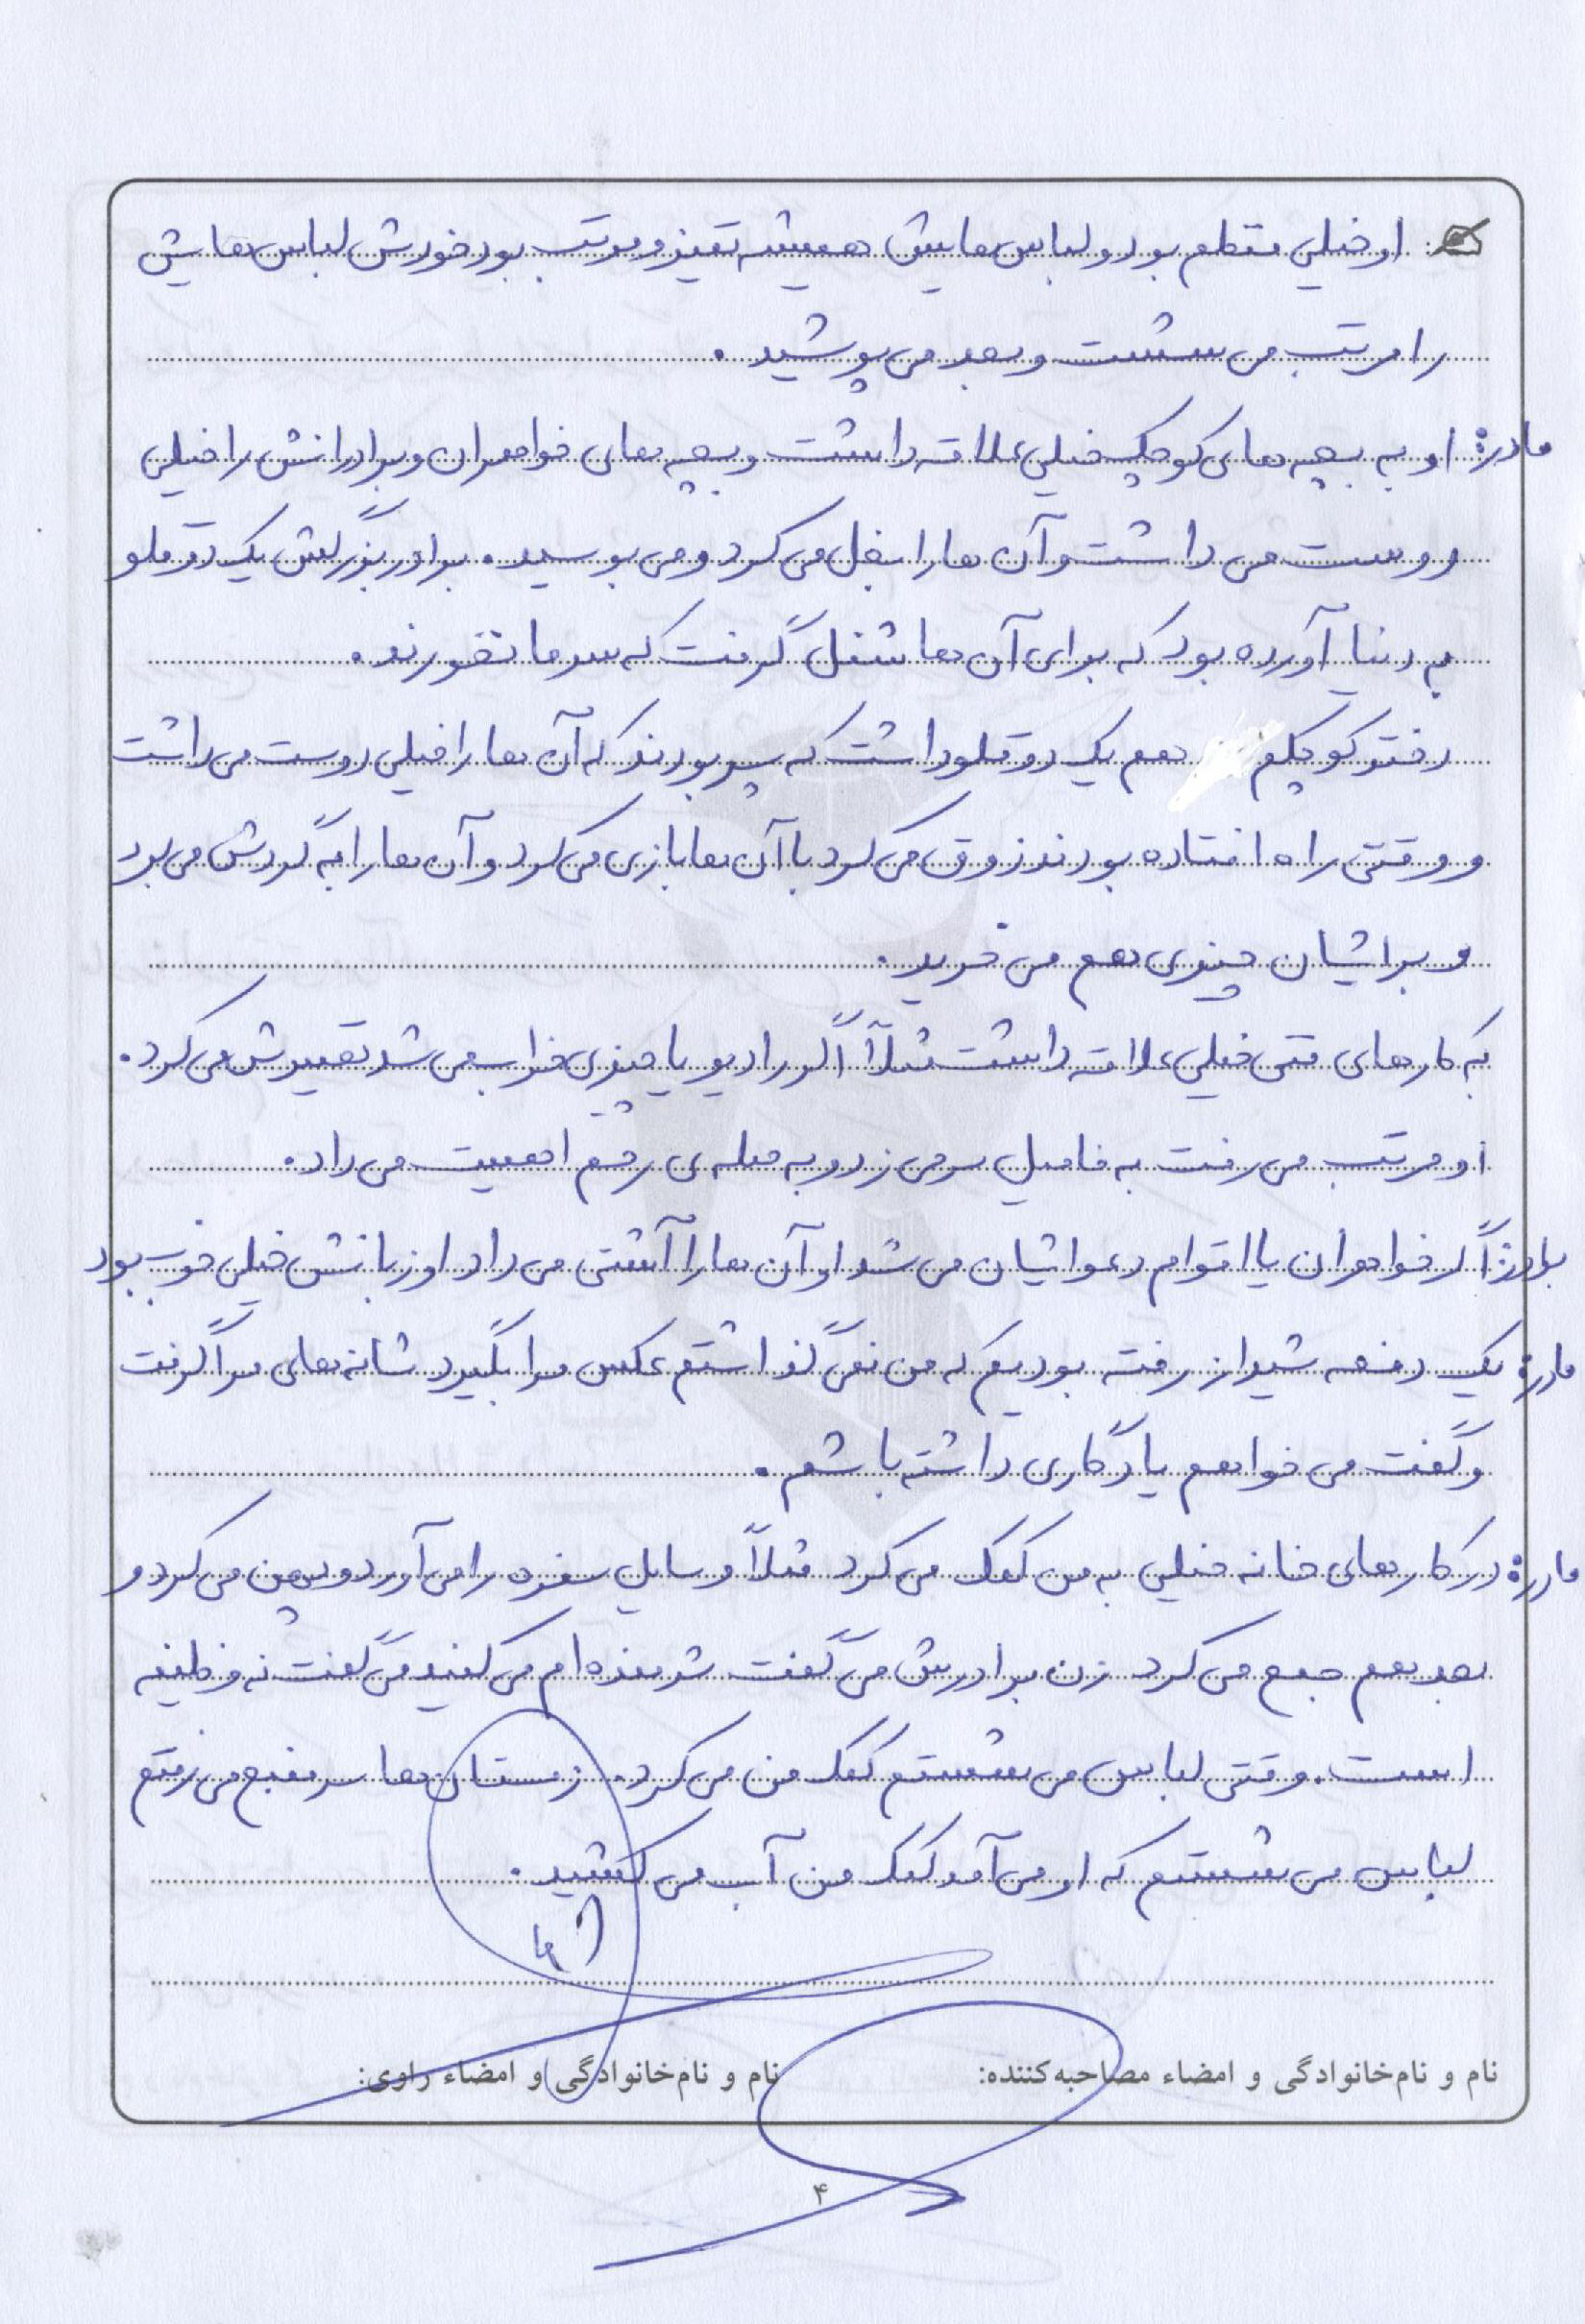 او خیلی منظم بود و لباس هایش همیشه تمیز و مرتب بود خودش لباس هایش
را مرتب می شست و بعد می پوشید.
مادر: او به بچه های کوچک خیلی علاقه داشت و بچه های خواهران و برادرانش را خیلی
دوست می داشت و آن ها را بغل می کرد و می بوسید. برادر بزرگش یک دوقلو
به دنیا آورده بود که برای آن ها شنل گرفت که سرما نخورند.
دختر کوچکم هم یک دوقلو داشت که پسر بودند که آن ها را خیلی دوست می داشت
و وقتی راه افتاده بودند ذوق می کرد با آن ها بازی می کرد و آن ها را به گردش می برد
و برایشان چیزی هم می خرید.
به کارهای فنی خیلی علاقه داشت مثلاً اگر رادیو یا چیزی خراب می شد تعمیرش می کرد.
او مرتب می رفت به فامیل سر می زد و به صله ی رحم اهمیت می داد.
اگر خواهران یا اقوام دعوایشان می شد او آن ها را آشتی می داد او زبانش خیلی خوب بود
مادر: یک دفعه شیراز رفته بودیم که من نمی گذاشتم عکس مرا بگیرد شانه های مرا گرفت
و گفت می خواهم یادگاری داشته باشم.
مادر: در کارهای خانه خیلی به من کمک می کرد مثلاً وسایل سفره را می آورد و پهن می کرد و
بعد هم جمع می کرد زن برادرش می گفت شرمنده ام می کنید می گفت نه وظیفه
است. وقتی لباس می شستم کمک من می کرد. زمستان ها سر منبع می رفتم
لباس می شستم که او می آمد کمک من آب می کشید.
نام و نام‌خانوادگی و امضاء مصاحبه‌کننده: نام و نام‌خانوادگی و امضاء راوی:
۴